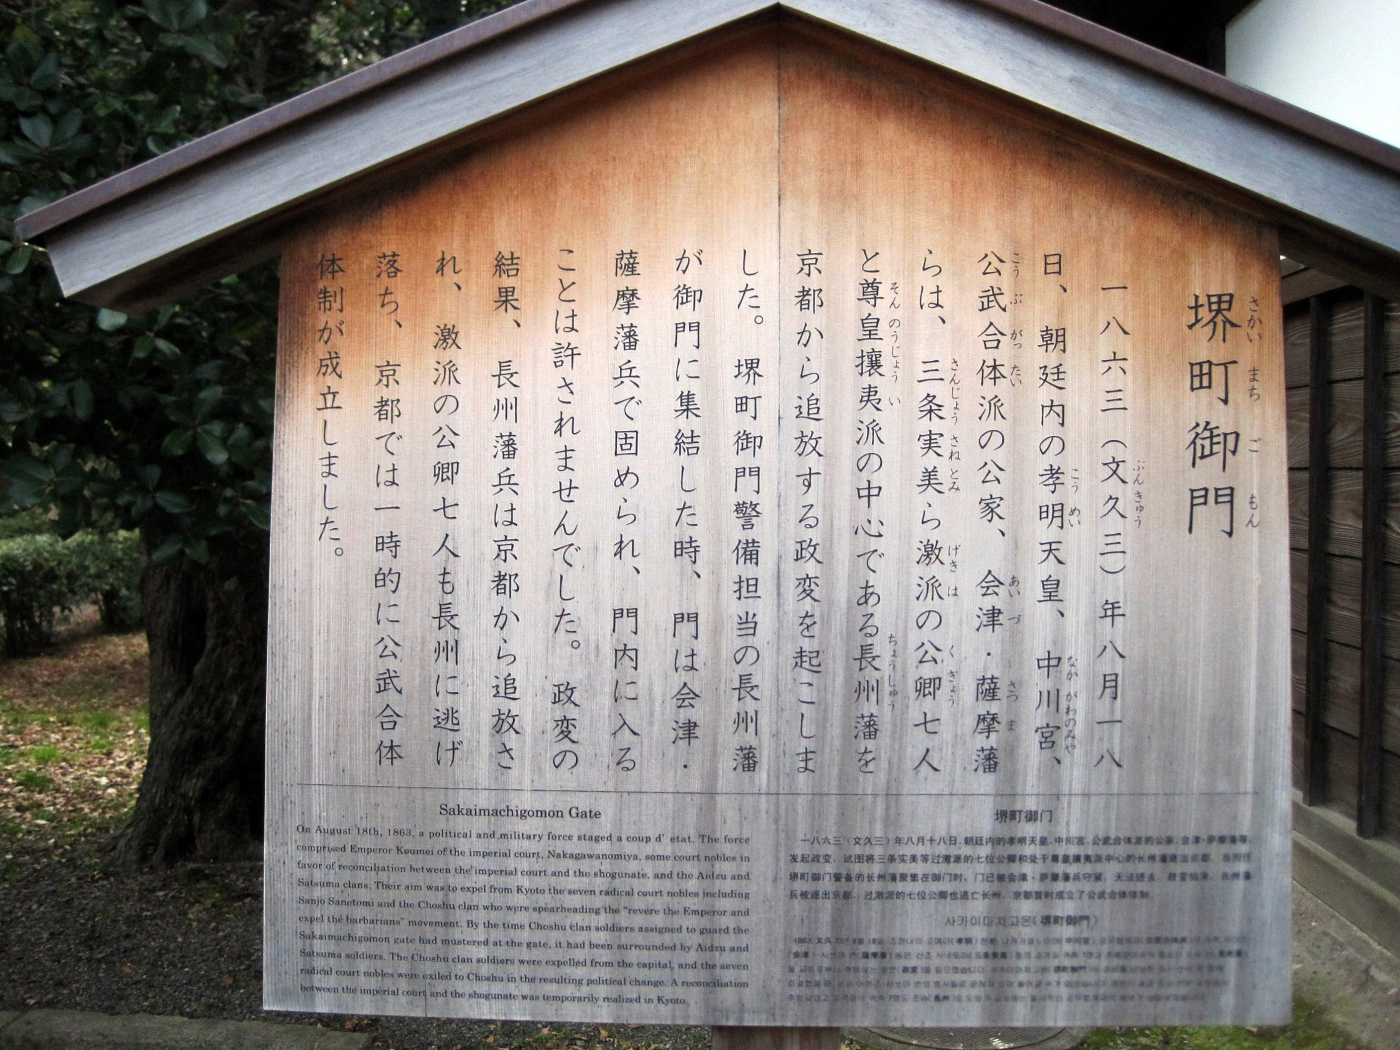 堺町御門
一八六三（文久三）年八月一八
日、朝廷内の孝明天皇、中川宮、
公武合体派の公家、会津・薩摩藩
らは、三条実美ら激派の公卿七人
と尊皇攘夷派の中心である長州藩を
京都から追放する政変を起こしま
した。堺町御門警備担当の長州藩
が御門に集結した時、門は会津・
薩摩藩兵で固められ、門内に入る
ことは許されませんでした。政変の
結果、長州藩兵は京都から追放さ
れ、激派の公卿七人も長州に逃げ
落ち、京都では一時的に公武合体
体制が成立しました。
Sakaimachigomon Gate
On August 18th, 1863, a political and military force staged a coup d' etat. The force
comprised Emperor Koumei of the imperial court, Nakagawanomiya, some court nobles in
favor of reconciliation between the imperial court and the shogunate, and the Aidzu and
Satsuma clans. Their aim was to expel from Kyoto the seven radical court nobles including
Sanjo Sanetomi and the Choshu clan who were spearheading the "revere the Emperor and
expel the barbarians" movement. By the time Choshu clan soldiers assigned to guard the
Sakaimachigomon gate had mustered at the gate, it had been surrounded by Aidzu and
Satsuma soldiers. The Choshu clan soldiers were expelled from the capital, and the seven
radical court nobles were exiled to Choshu in the resulting political change. A reconciliation
between the imperial court and the shogunate was temporarily realized in Kyoto.
堺町御门
一八六三（文久三）年八月十八日，朝廷内的孝明天皇、中川宫、公武合体派的公家、会津・萨摩藩等，
发起政变，试图将三条实美等过激派的七位公卿和处于尊皇攘夷派中心的长州藩逐出京都。
堺町御门警备的长州藩聚集在御门时，门已被会津・萨摩藩兵守紧，无法进去。政变结果，长州藩
兵被逐出京都，过激派的七位公卿也逃亡长州，京都暂时成立了公武合体体制。
사카이마치고몬(堺町御門)